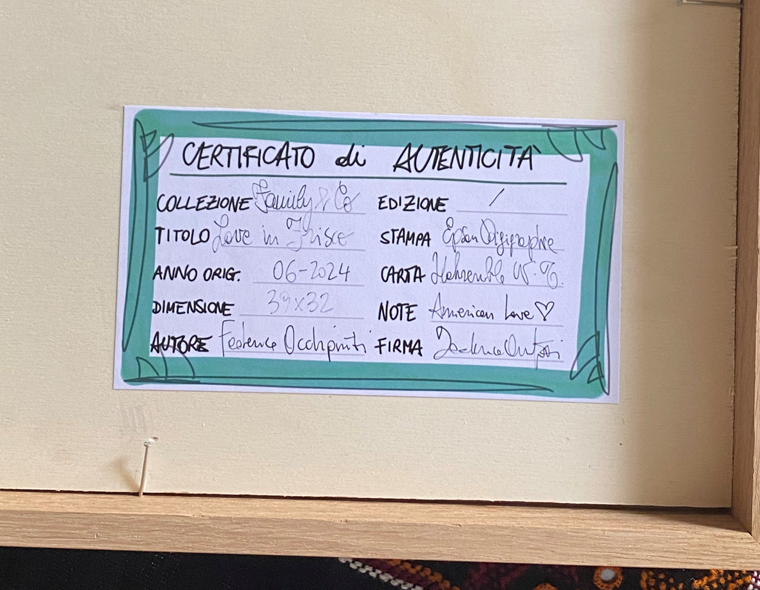 CERTIFICATO di AUTENTICITÀ
COLLEZIONE Family & Co EDIZIONE /
TITOLO Love in Frisco STAMPA Epson Digigraphie
ANNO ORIG. 06-2024 CARTA
DIMENSIONE 39x32 NOTE American Love♡
AUTORE Federica Occhipinti FIRMA